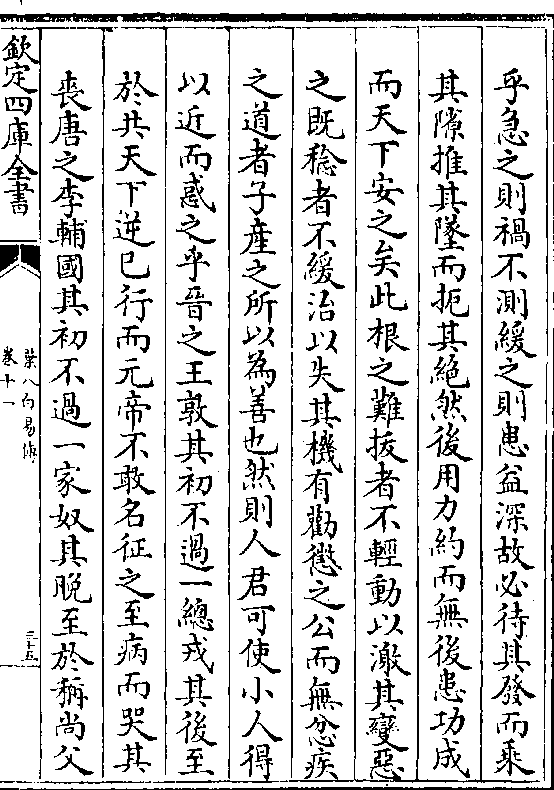 乎急之則禍不測緩之則患益深故必待其發而乗
其隙推其墜而扼其絶然後用力約而無後患功成
而天下安之矣此根之難拔者不輕動以激其變惡
之既稔者不緩治以失其機有勸懲之公而無忿疾
之道者子產之所以為善也然則人君可使小人得
以近而惑之乎晉之王敦其初不過一總戎其後至
於共天下逆已行而元帝不敢名征之至病而哭其
喪唐之李輔國其初不過一家奴其晚至於稱尚父
欽定四庫全書
葉八白易傳
卷十一
三十五